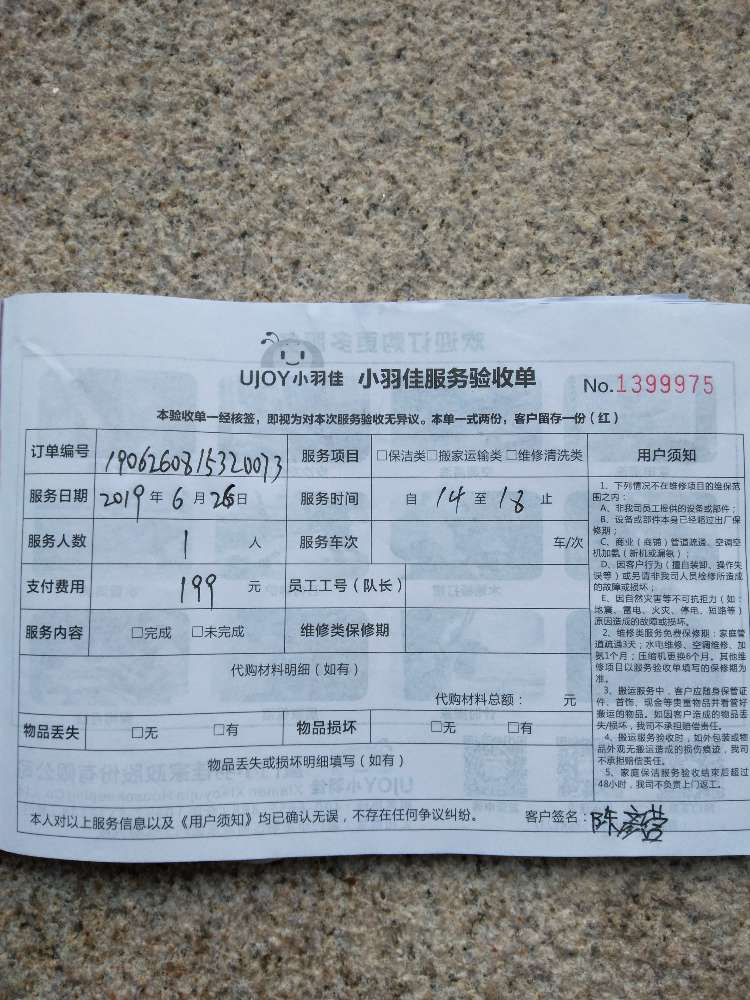 UJOY小羽佳 小羽佳服务验收单 No.1399975
本验收单一经核签，即视为对本次服务验收无异议。本单一式两份，客户留存一份（红）
订单编号 1906260815320073 服务项目 □保洁类□搬家运输类□维修清洗类
服务日期 2019年6月26日 服务时间 自 14 至 18 止
服务人数 1 人 服务车次 车/次
支付费用 199 元 员工工号（队长）
服务内容 □完成 □未完成 维修类保修期
代购材料明细（如有）
代购材料总额： 元
物品丢失 □无 □有 物品损坏 □无 □有
物品丢失或损坏明细填写（如有）
用户须知
1、下列情况不在维修项目的维保范
围之内：
A、非我司员工提供的设备或部件；
B、设备或部件本身已经超过出厂保
修期；
C、商业（商铺）管道疏通、空调空
机加氨（新机或漏氨）；
D、因客户行为（擅自装卸、操作失
误等）或另请非我司人员检修所造成
的故障或损坏；
E、因自然灾害等不可抗拒力（如：
地震、雷电、火灾、停电、短路等）
原因造成的故障或损坏。
2、维修类服务免费保修期：家庭管
道疏通3天；水电维修、空调维修、加
氨1个月；压缩机更换6个月。其他维
修项目以服务验收单填写的保修期为
准。
3、搬运服务中，客户应随身保管证
件、首饰、现金等贵重物品并看管好
搬运的物品。如因客户造成的物品丢
失/损坏，我司不承担赔偿责任。
4、搬运服务验收时，如外包装或物
品外观无搬运造成的损伤痕迹，我司
不承担赔偿责任。
5、家庭保洁服务验收结束后超过
48小时，我司不负责上门返工。
本人对以上服务信息以及《用户须知》均已确认无误，不存在任何争议纠纷。 客户签名：陈